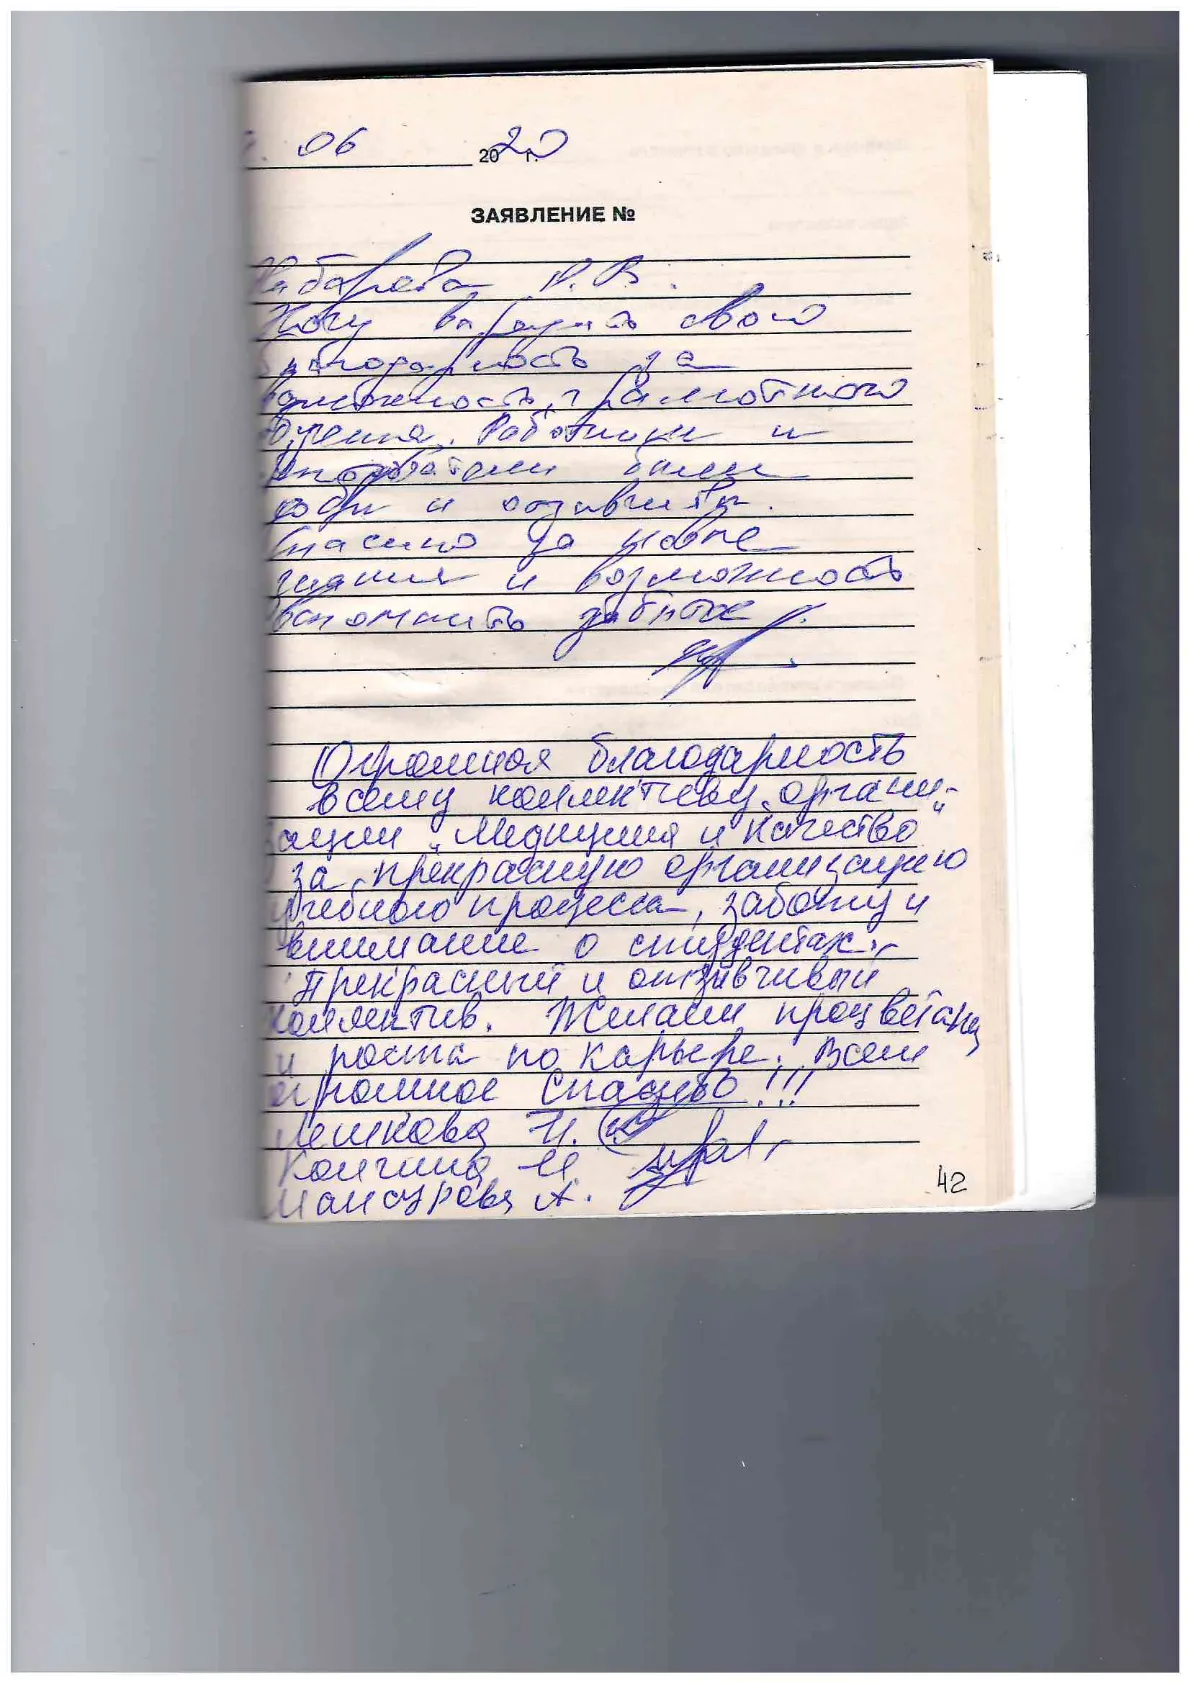 06 2020 г.
ЗАЯВЛЕНИЕ №
Р. В.
Хочу выразить свою
благодарность за
возможность, грамотного
обучения. Работники и
были
и отзывчивы.
Спасибо за новые
знания и возможность
вспомнить забытое.
Огромная благодарность
всему коллективу органи-
зации "Медицина и Качество"
за прекрасную организацию
учебного процесса, заботу и
внимание о студентах.
Прекрасный и отзывчивый
коллектив. Желаем процветания
и роста по карьере. Всем
огромное Спасибо!!!
Лешкова И.
И
Мансурова А.
42